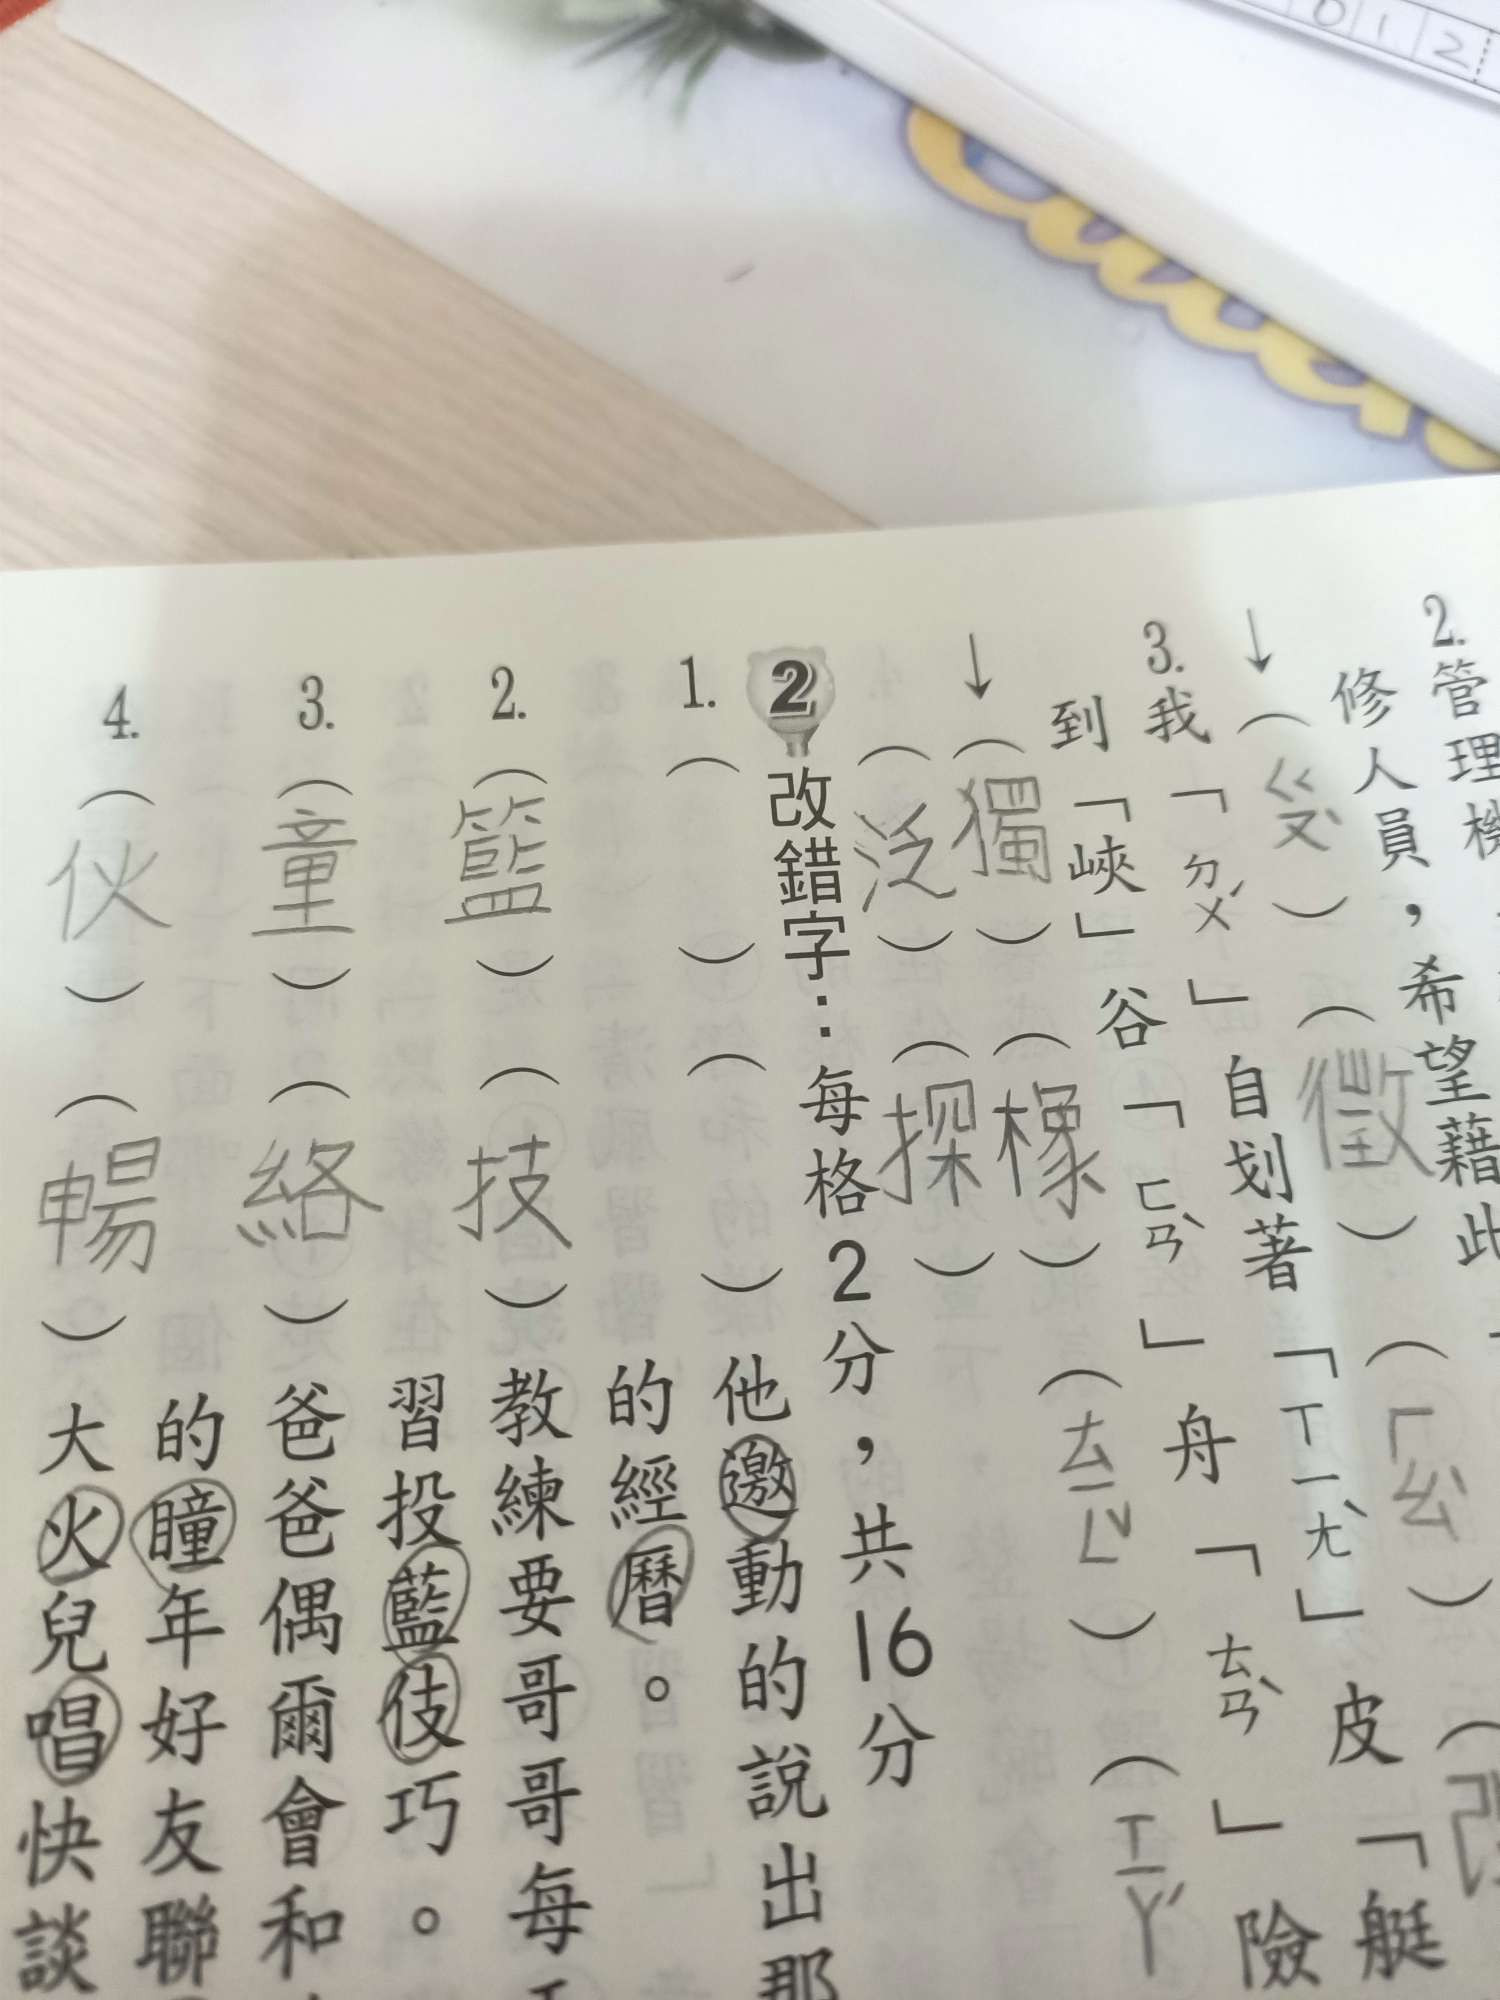 0 1 2
2. 管理機
修人員，希望藉此
（ㄍㄡˋ）（徵）（ㄏㄠ
3. 我「ㄉㄨˊ」自划著「ㄒㄧㄤˋ」皮「艇
到「峽」谷「ㄈㄢˋ」舟「ㄊㄢˋ」險
（獨）（橡）（ㄊㄧㄥˇ）（ㄒㄧㄚˊ
（泛）（探）
2 改錯字：每格2分，共16分
1. （ ）（ ）他邀動的說出那
的經曆。
2. （籃）（技）教練要哥哥每
習投藍伎巧。
3. （童）（絡）爸爸偶爾會和
的瞳年好友聯
4. （伙）（暢）大火兒唱快談